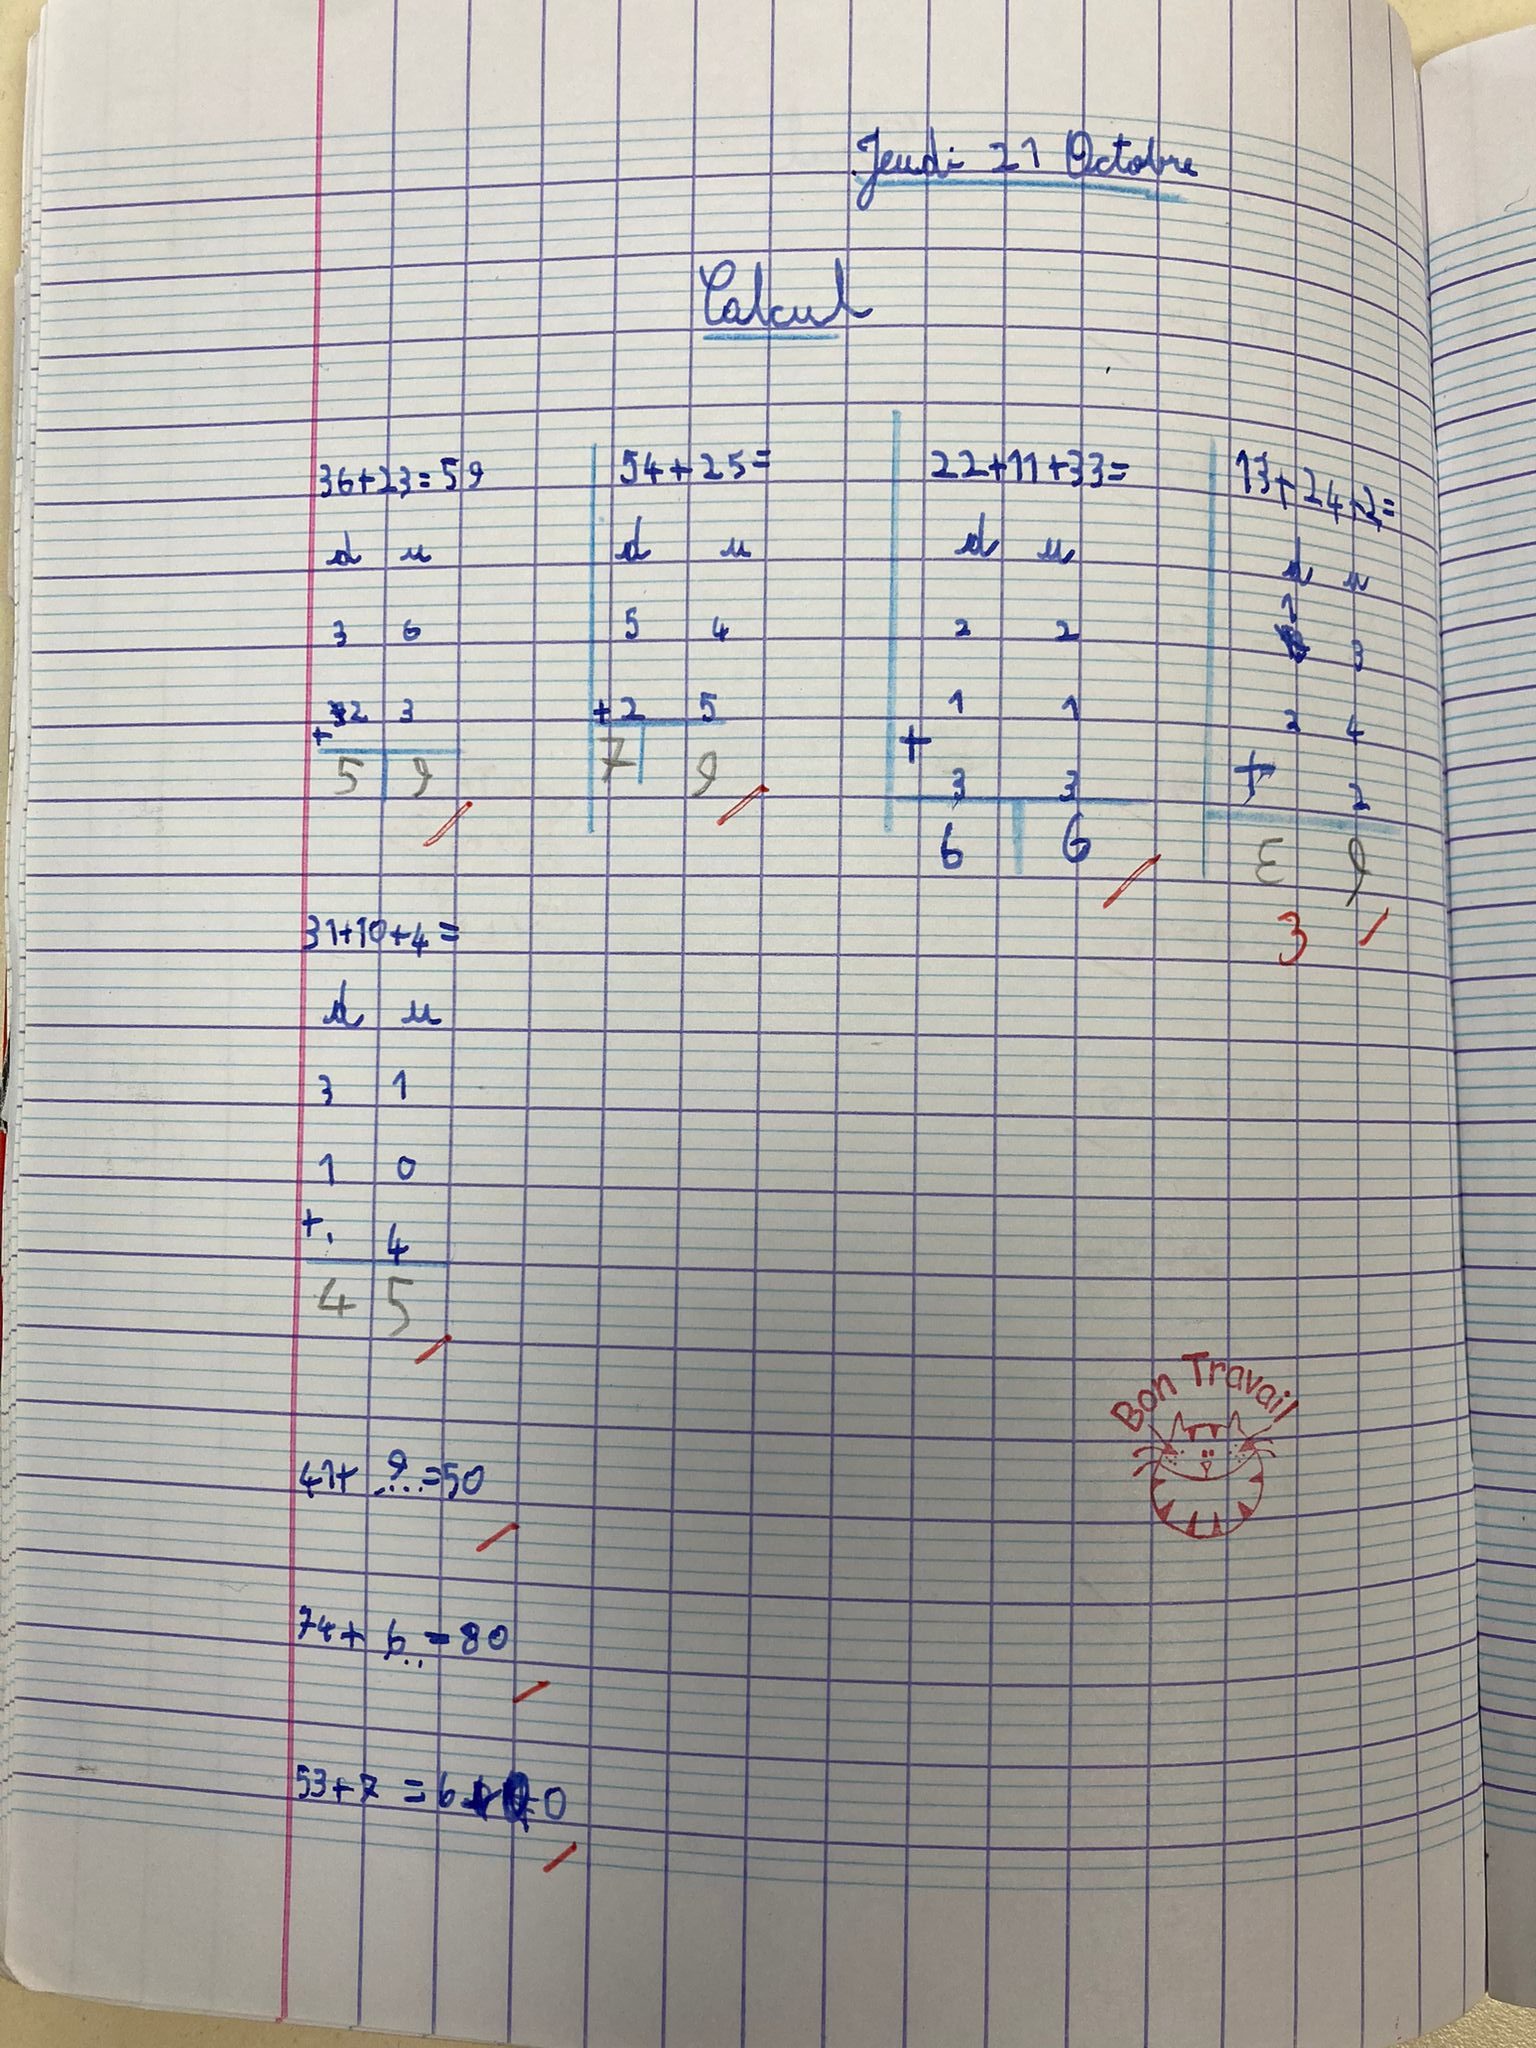 Jeudi 21 Octobre
Calcul
36+23=59
d u
3 6
+ 2 3
5 9
54+25=
d u
5 4
+2 5
7 9
22+11+33=
d u
2 2
1 1
+
3 3
6 6
13+24+2=
d u
1 3
2 4
+ 2
3 9
3
31+10+4=
d u
3 1
1 0
+. 4
4 5
41+ 9...=50
74+ 6.. =80
53+7 = 6 0
Bon Travail